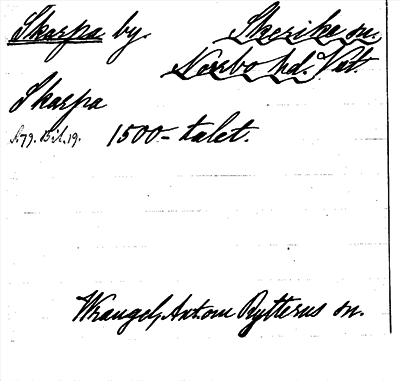 Skarpa by. Skerike sn.
Norrbo hd. Vstl.
Skarpa
s. 79. Bil. 19. 1500-talet.
Wrangel, Ant. om Rytterns sn.